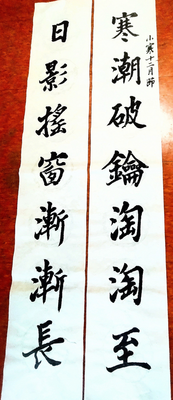 小寒十二月節
寒潮破鑰淘淘至
日影搖窗漸漸長